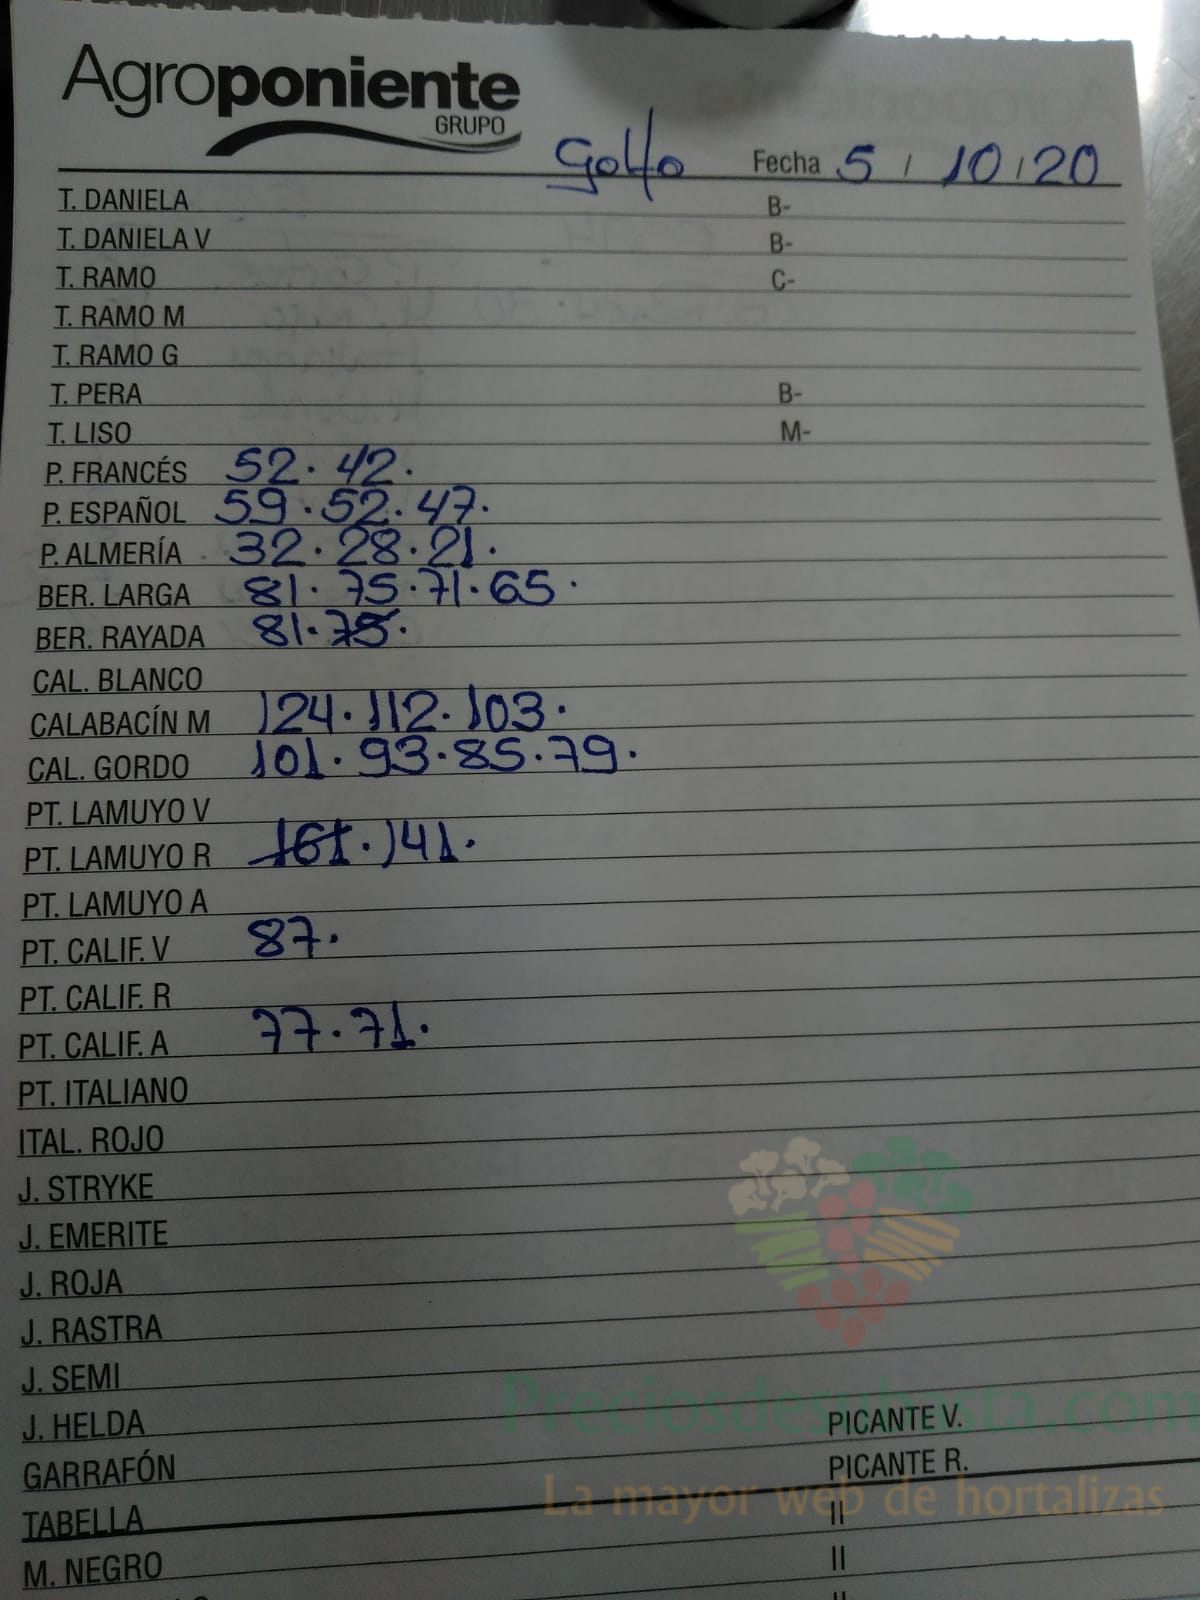 Agroponiente
GRUPO
Golfo Fecha 5 / 10 / 20
T. DANIELA B-
T. DANIELA V B-
T. RAMO C-
T. RAMO M
T. RAMO G
T. PERA B-
T. LISO M-
P. FRANCÉS 52. 42.
P. ESPAÑOL 59. 52. 47.
P. ALMERÍA 32. 28. 21.
BER. LARGA 81. 75. 71. 65.
BER. RAYADA 81. 75.
CAL. BLANCO
CALABACÍN M 124. 112. 103.
CAL. GORDO 101. 93. 85. 79.
PT. LAMUYO V
PT. LAMUYO R 161. 141.
PT. LAMUYO A
PT. CALIF. V 87.
PT. CALIF. R
PT. CALIF. A 77. 71.
PT. ITALIANO
ITAL. ROJO
J. STRYKE
J. EMERITE
J. ROJA
J. RASTRA
J. SEMI
Preciosdesubasta.com
J. HELDA PICANTE V.
GARRAFÓN PICANTE R.
La mayor web de hortalizas
TABELLA II
M. NEGRO II